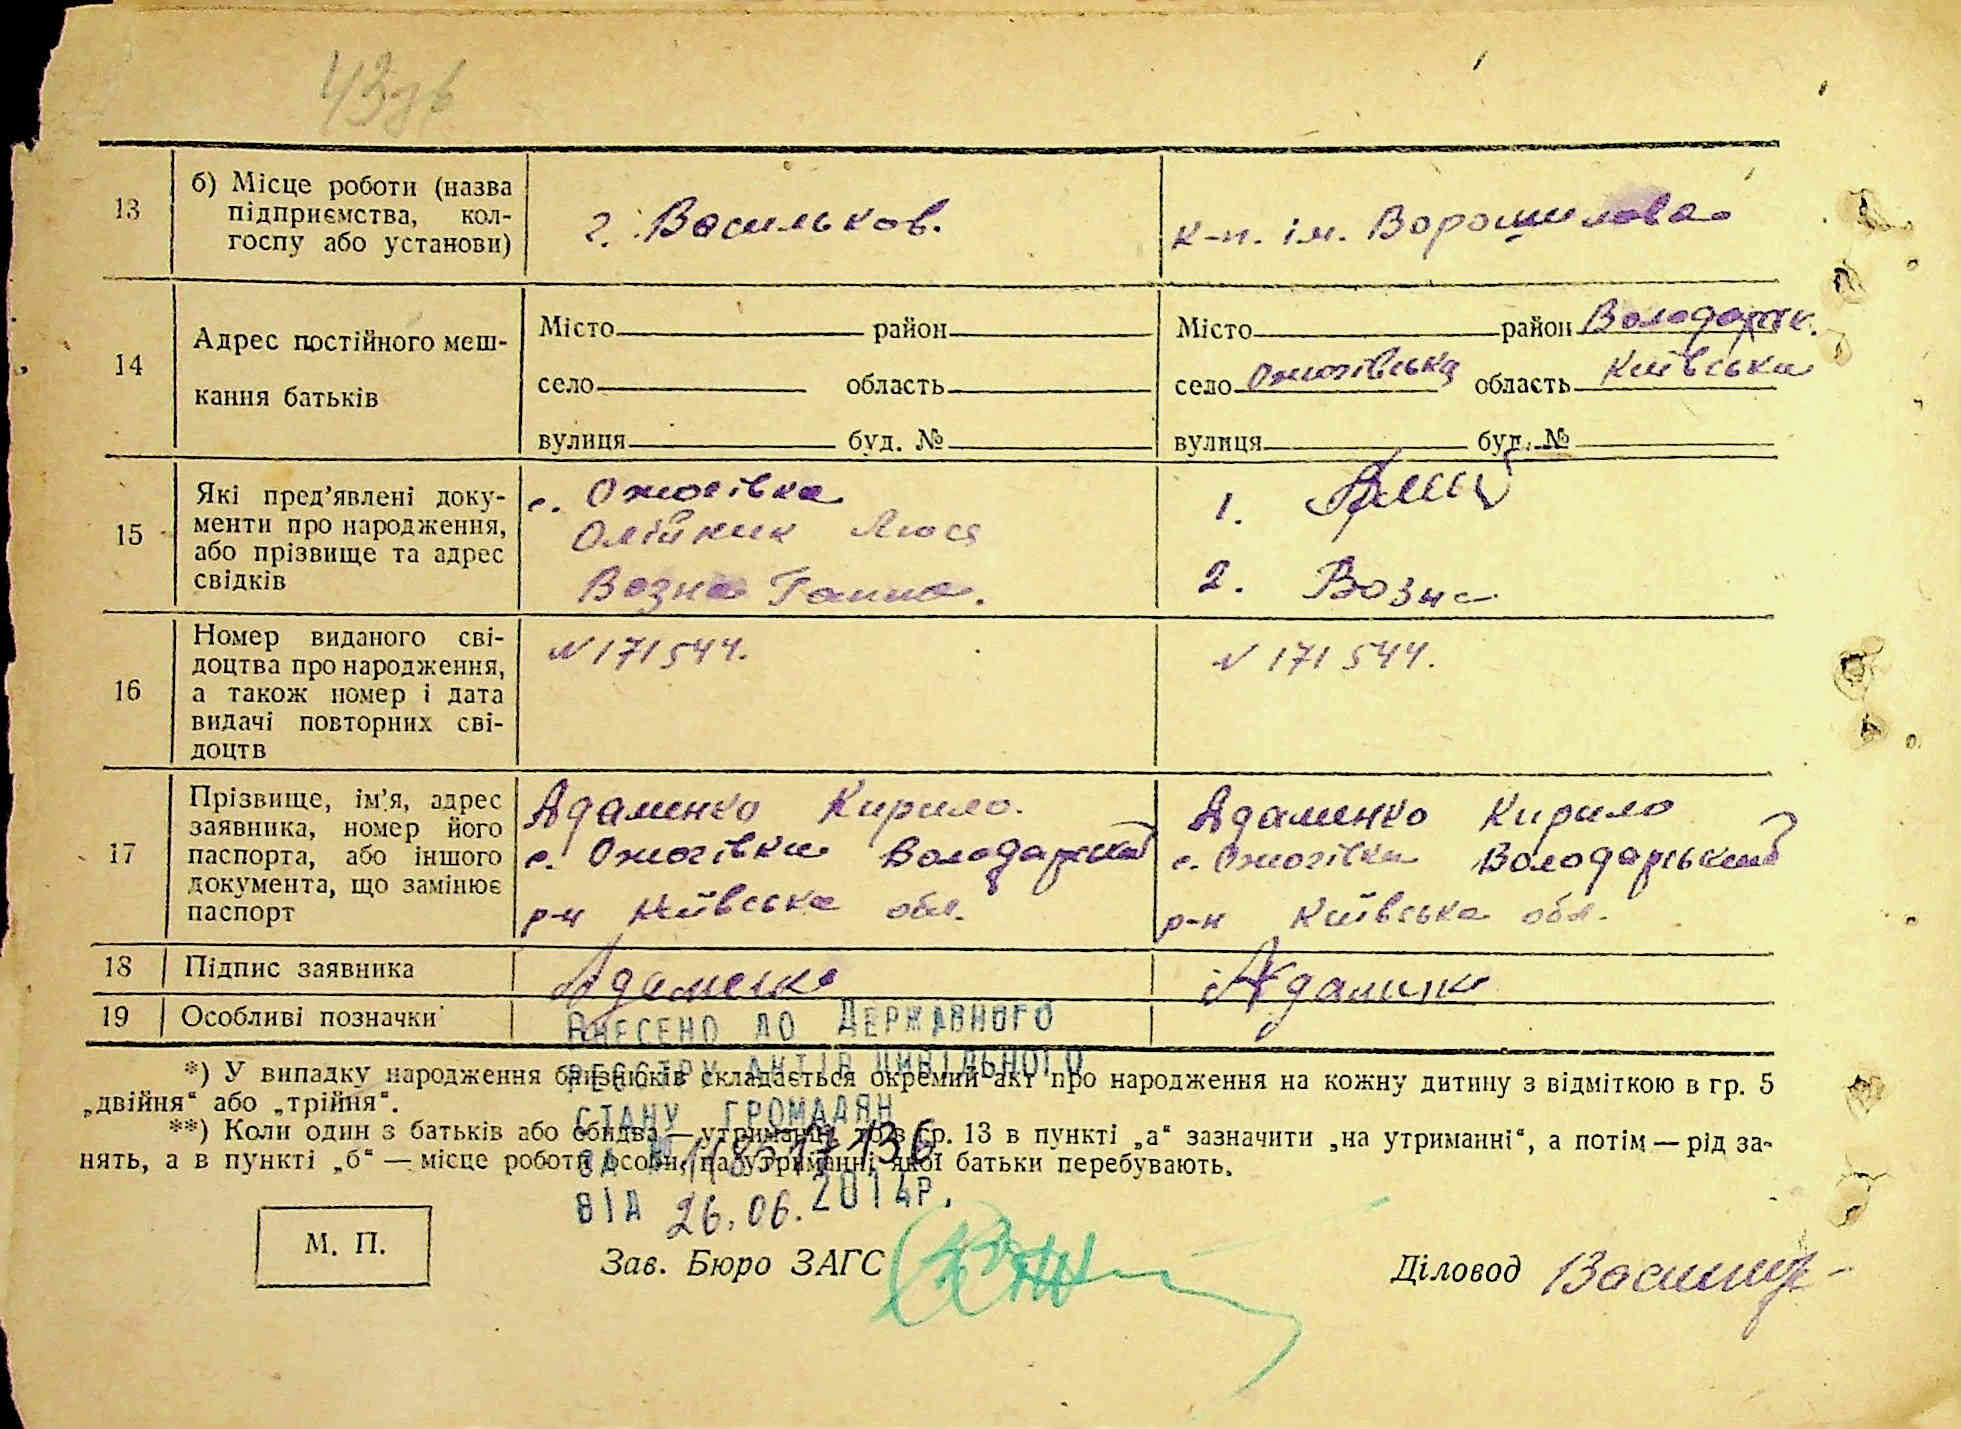 13
б) Місце роботи (назва
підприємства, кол-
госпу або установи)
г. Васильков.
к-п. ім. Ворошилова
14
Адрес постійного меш-
кання батьків
Місто район
село область
вулиця буд. №
Місто район Володарськ.
село Ожогівська область Київська
вулиця буд. №
15
Які пред’явлені доку-
менти про народження,
або прізвище та адрес
свідків
с. Ожогівка
Олійник Люся
Возна Ганна.
1.
2. Возна
16
Номер виданого сві-
доцтва про народження,
а також номер і дата
видачі повторних сві-
доцтв
N 171544.
N 171544.
17
Прізвище, ім’я, адрес
заявника, номер його
паспорта, або іншого
документа, що замінює
паспорт
Адаменко Кирило.
с. Ожогівка Володарський
р-н Київська обл.
Адаменко Кирило
с. Ожогівка Володарський
р-н Київська обл.
18
Підпис заявника
Адаменко
Адаменко
19
Особливі позначки
ВНЕСЕНО ДО ДЕРЖАВНОГО
РЕЄСТРУ АКТІВ ЦИВІЛЬНОГО
СТАНУ ГРОМАДЯН
ВІД 26.06.2014Р.
*) У випадку народження близнюків складається окремий акт про народження на кожну дитину з відміткою в гр. 5
„двійня“ або „трійня“.
**) Коли один з батьків або обидва — утриманці, то в гр. 13 в пункті „а“ зазначити „на утриманні“, а потім — рід за-
нять, а в пункті „б“ — місце роботи особи, на утриманні якої батьки перебувають.
М. П.
Зав. Бюро ЗАГС
Діловод